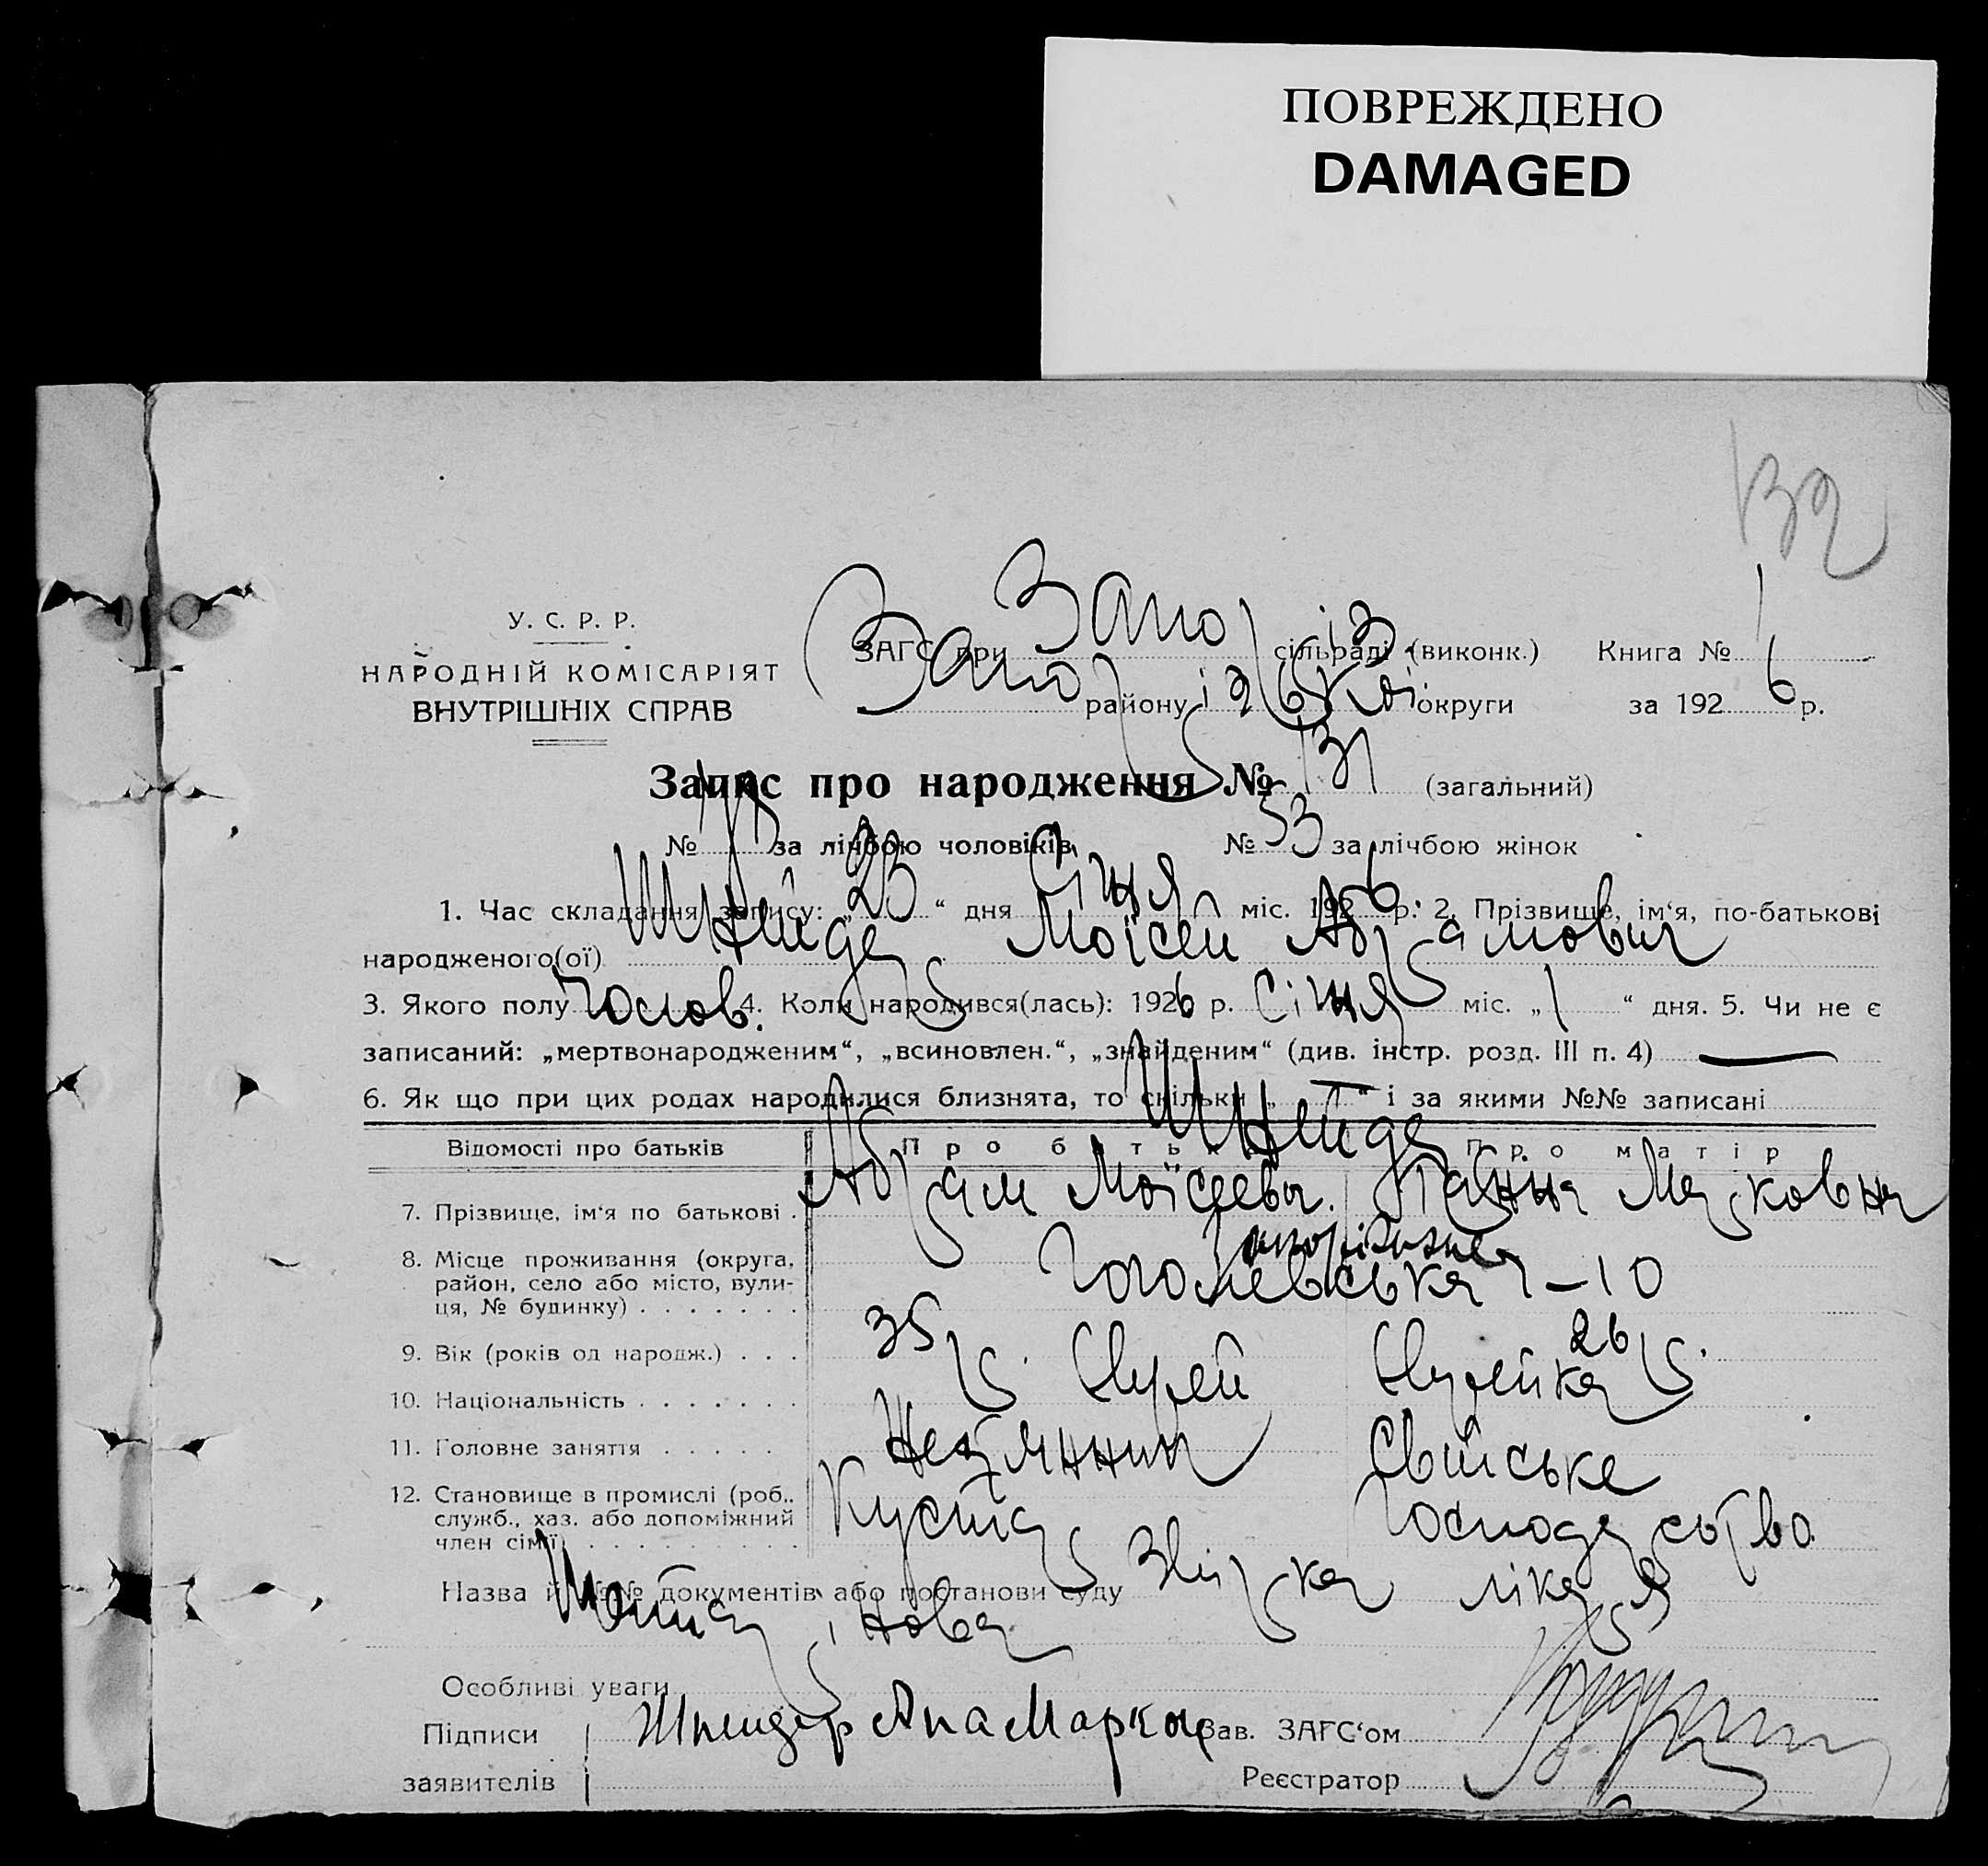 ПОВРЕЖДЕНО
DAMAGED
132
У. С. Р. Р.
НАРОДНІЙ КОМІСАРІЯТ
ВНУТРІШНІХ СПРАВ
ЗАГС при Запоріз сільраді (виконк.) Книга № 1
Запорізької району округи за 1926 р.
Запис про народження № 131 (загальний)
№ за лічбою чоловіків № 53 за лічбою жінок
1. Час складання запису: „23“ дня Січня міс. 1926 р. 2. Прізвище, ім‘я, по-батькові
народженого(ої) Шнейдер Моісей Абрамович
3. Якого полу Чолов. 4. Коли народився(лась): 1926 р. Січня міс. „1“ дня. 5. Чи не є
записаний: „мертвонародженим“, „всиновлен.“, „знайденим“ (див. інстр. розд. III п. 4) —
6. Як що при цих родах народилися близнята, то скільки „ “ і за якими №№ записані
Відомості про батьків Про батька Про матір
Шнейдер
7. Прізвище, ім‘я по батькові . Абрам Моісеєвич. Ганна Марковна
8. Місце проживання (округа, район, село або місто, вулиця, № будинку) . . . . . . . Запоріжжя Гоголевська 1–10
9. Вік (років од народж.) . . . 35 р. 26 р.
10. Національність . . . . . . . Єврей Єврейка
11. Головне заняття . . . . . Свійське
12. Становище в промислі (роб., служб., хаз. або допоміжний член сім‘ї) . . . . . . . . . Кустар Господарство
Назва й №№ документів або постанови суду лікаря
Особливі уваги
Підписи Шнейдер Ана Марков Зав. ЗАГС‘ом
заявителів Реєстратор